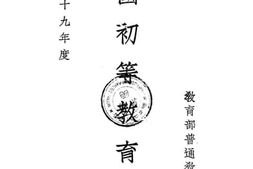 教育部普通教
國初等教育
十九年度